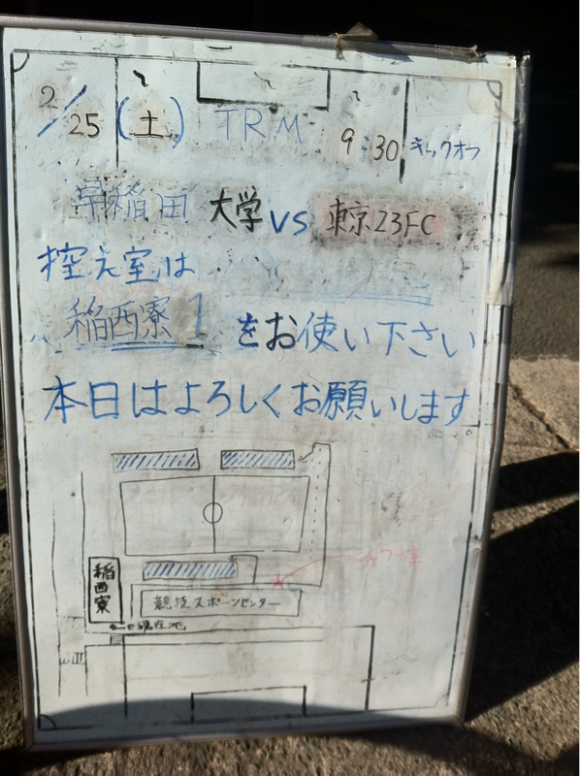 2/25(土) TRM 9:30 キックオフ
早稲田大学 VS 東京23FC
控え室は
稲西寮1 をお使い下さい
本日はよろしくお願いします。
シャワー室
稲西寮
競技スポーツセンター
現在地